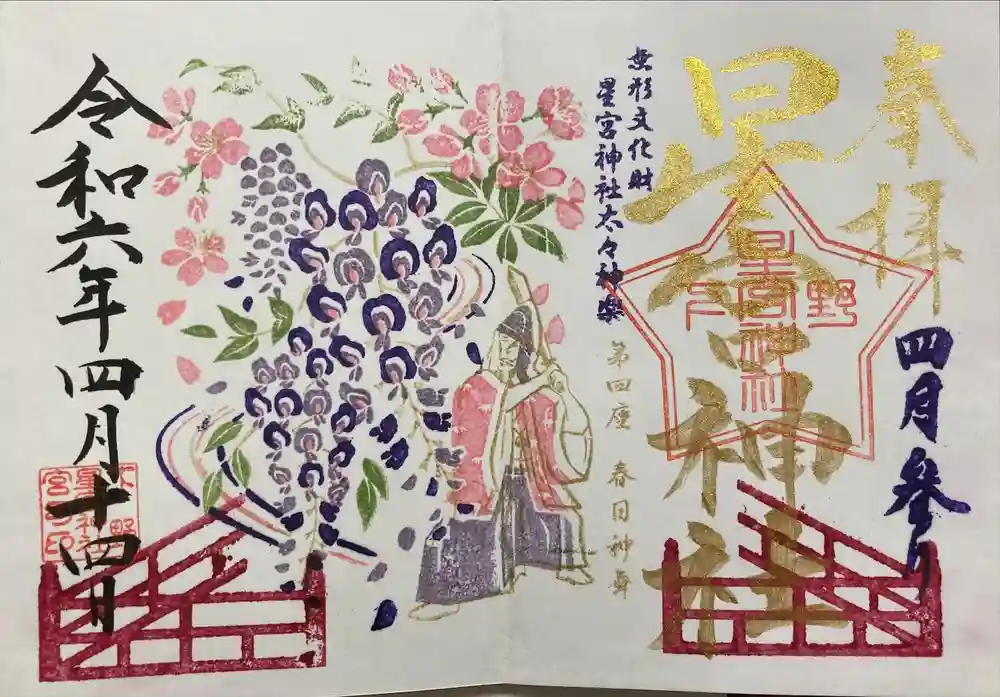 奉拝
四月参り
星宮神社
下野
星宮神社
無形文化財
星宮神社太々神楽
第四座 春日神舞
令和六年四月十四日
下野
星宮神社
宮司印